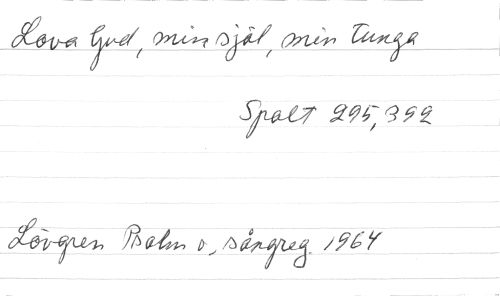 Lova Gud, min själ, min tunga
Spalt 295, 392
Lövgren Psalm o, sångreg. 1964